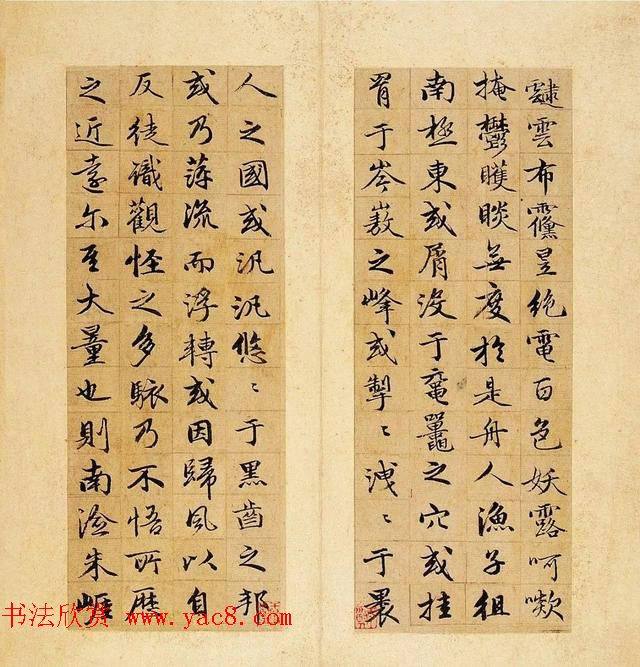 雲布昱絶電百色妖露呵㗵
掩鬱矆睒無度於是舟人漁子徂
南極東或屑没于黿鼉之穴或挂
罥于岑㟼之峰或掣〻洩〻于
人之國或汎汎悠〻于黑齒之邦
或乃萍流而浮轉或因歸風以自
反徒識觀怪之多駭乃不悟所歷
之近遠尔大量也則南澰朱崕
书法欣赏 www.yac8.com